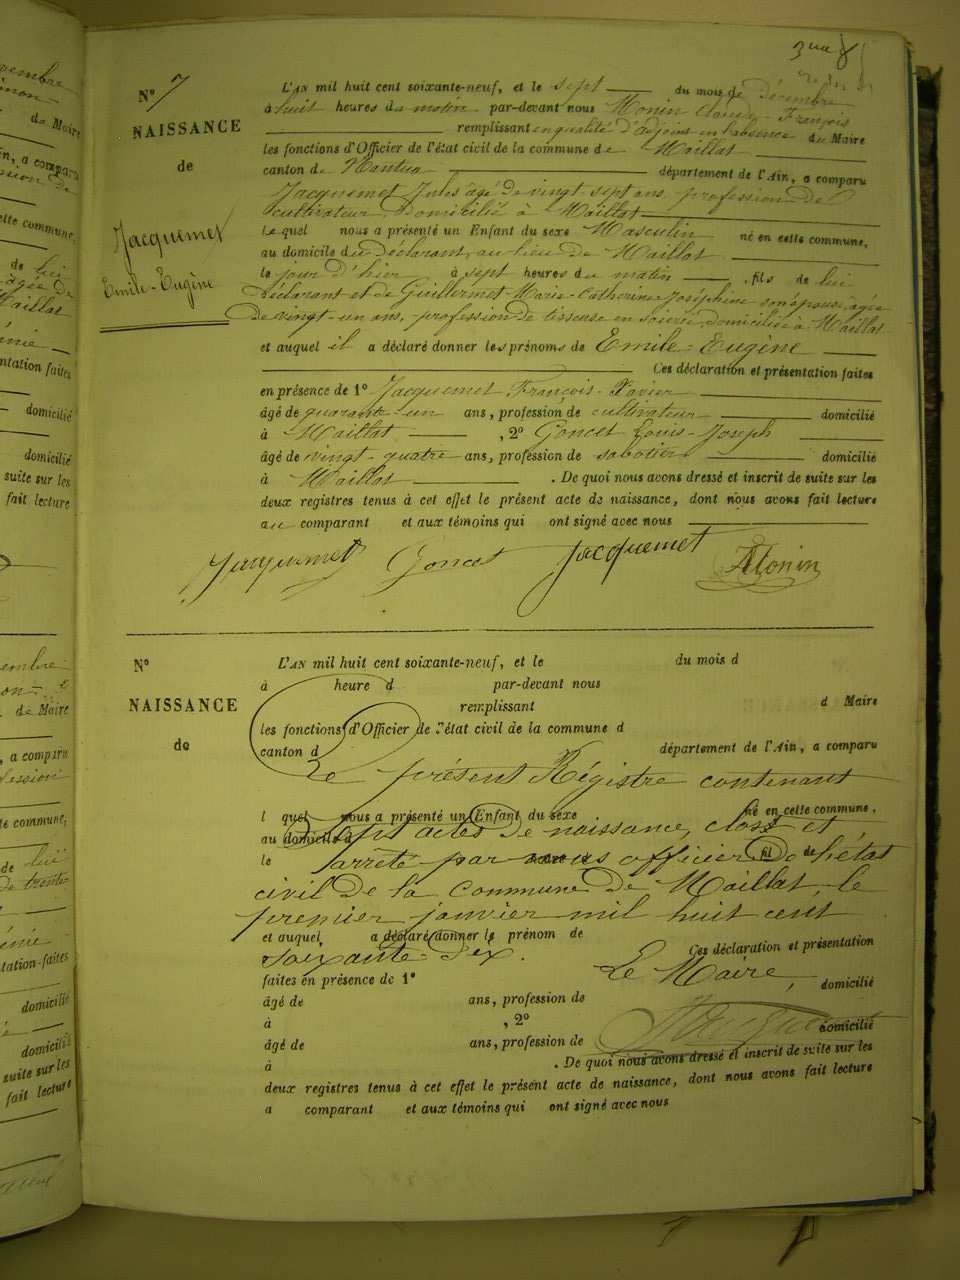 3me 8
N° 7
NAISSANCE
de
Jacquemet
Emile-Eugène
L'AN mil huit cent soixante-neuf, et le sept du mois de Décembre
à huit heures du matin par-devant nous Monin Claude-François
remplissant en qualité d'adjoint en l'absence du Maire
les fonctions d'Officier de l'état civil de la commune de Maillat
canton de Nantua département de l'Ain, a comparu
Jacquemet Jules âgé de vingt-sept ans, profession de
cultivateur, domicilié à Maillat
Lequel nous a présenté un Enfant du sexe Masculin né en cette commune,
au domicile du Déclarant, au lieu de Maillat
le jour d'hier à sept heures du matin, fils de lui
Déclarant et de Guillermet Marie-Catherine-Joséphine son épouse, âgée
de vingt-un ans, profession de tisseuse en soierie, domiciliée à Maillat
et auquel il a déclaré donner les prénoms de Emile-Eugène
Ces déclaration et présentation faites
en présence de 1° Jacquemet François-Xavier
âgé de quarante-un ans, profession de cultivateur domicilié
à Maillat, 2° Goncet Louis-Joseph
âgé de vingt-quatre ans, profession de sabotier domicilié
à Maillat. De quoi nous avons dressé et inscrit de suite sur les
deux registres tenus à cet effet le présent acte de naissance, dont nous avons fait lecture
au comparant et aux témoins qui ont signé avec nous
Jacquemet Goncet Jacquemet Monin
N°
NAISSANCE
de
L'AN mil huit cent soixante-neuf, et le du mois d
à heure d par-devant nous
remplissant d Maire
les fonctions d'Officier de l'état civil de la commune d
canton d département de l'Ain, a comparu
Le présent Régistre contenant
l quel nous a présenté un Enfant du sexe né en cette commune,
sept actes de naissance, clos et
au domicile d
le heure d fil de
arrêté par nous officier de l'état
civil de la commune de Maillat, le
premier janvier mil huit cent
et auquel a déclaré donner le prénom de
soixante-dix.
Ces déclaration et présentation
faites en présence de 1° Le Maire, domicilié
âgé de ans, profession de
à , 2° domicilié
âgé de ans, profession de
à . De quoi nous avons dressé et inscrit de suite sur les
deux registres tenus à cet effet le présent acte de naissance, dont nous avons fait lecture
a comparant et aux témoins qui ont signé avec nous